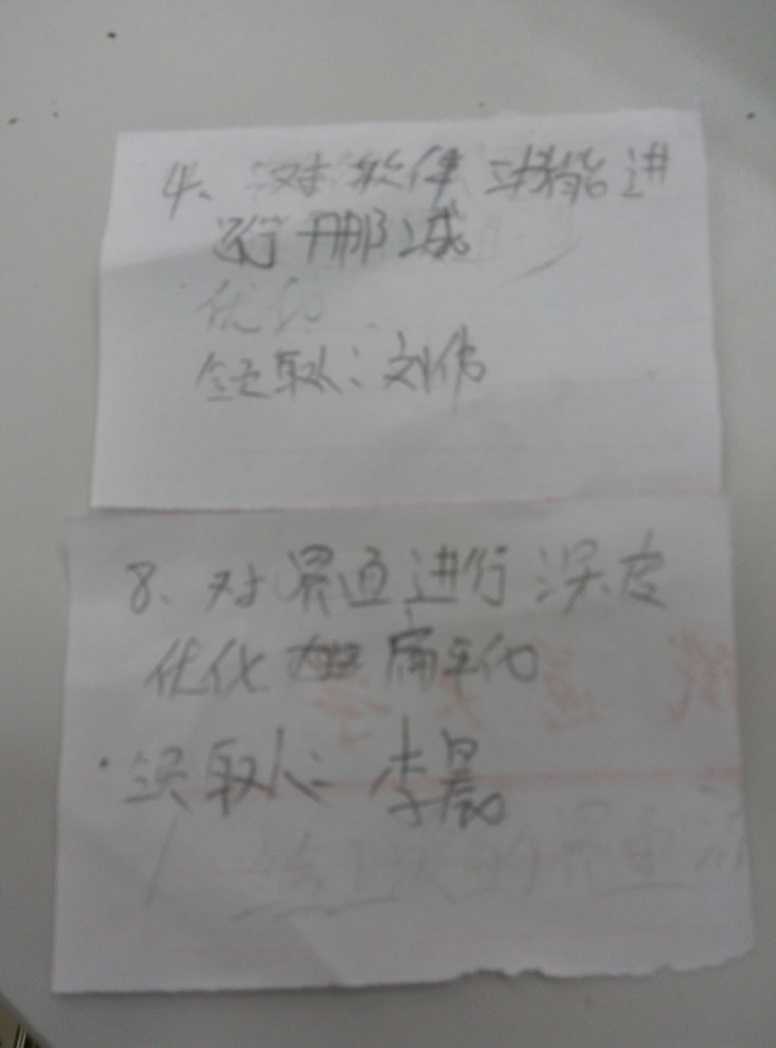 4、对软件功能进
行删减
优化
领取人：刘伟
8、对界面进行深度
优化 扁平化
领取人：李晨